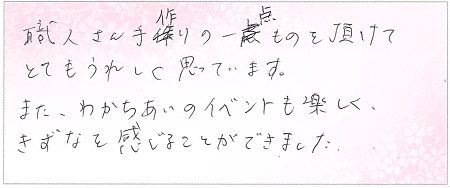 職人さん手作りの一点ものを頂けて
とてもうれしく思っています。
また、わかちあいのイベントも楽しく、
きずなを感じることができました.